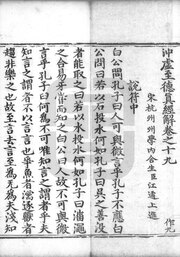 沖虛至德真經解卷之十九
宋杭州州學內舍生臣江遹上進
說符中
白公問孔子曰人可與微言乎孔子不應白
公問曰若以石投水何如孔子曰吳之善沒
者能取之曰若以水投水何如孔子曰淄澠
之合易牙嘗而知之白公曰人故不可與微
言乎孔子曰何為不可唯知言之謂者乎夫
知言之謂者不以言言也爭魚者濡逐獸者
趨非樂之也故至言去言至為无為夫淺知